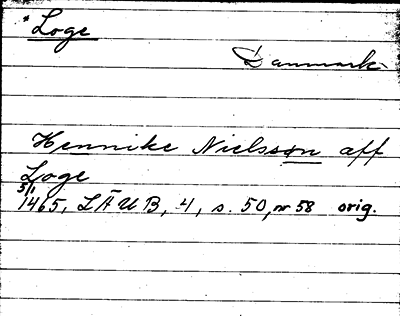 Loge
Danmark
Hennike Nielsson aff
Loge
5/1
1465, LÄUB, 4, s. 50, nr 58 orig.